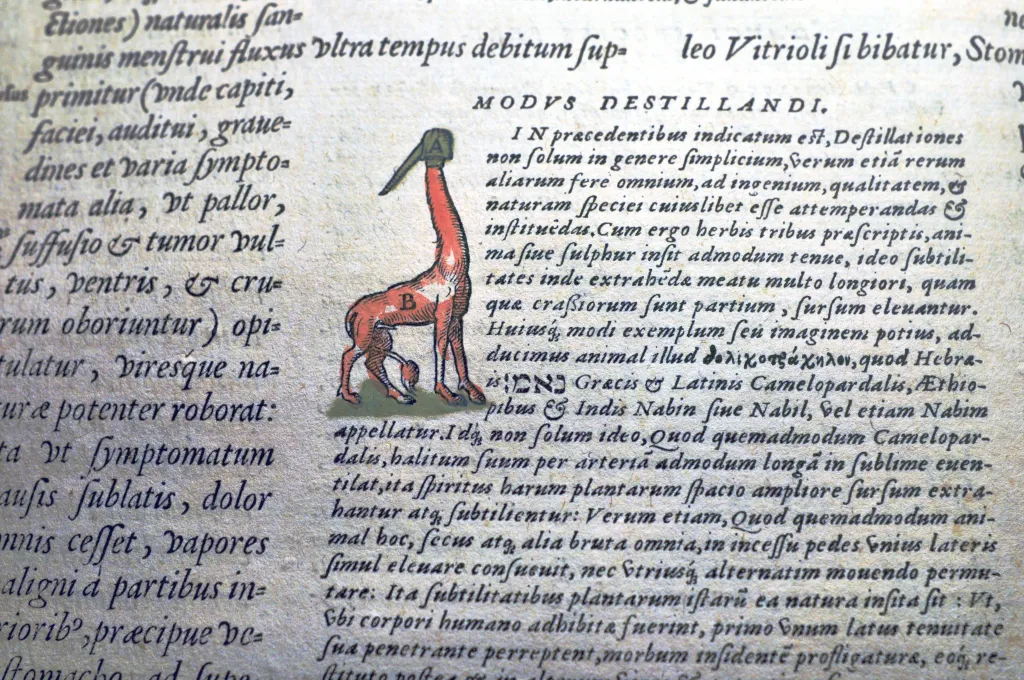 ctiones) naturalis ſan=
guinis menſtrui fluxus vltra tempus debitum ſup=
primitur (vnde capiti,
faciei, auditui, graue=
dines et varia ſympto=
mata alia, vt pallor,
ſuffuſio & tumor vul=
tus, ventris, & cru=
rum oboriuntur) opi=
tulatur, viresque na=
turæ potenter roborat:
vt ſymptomatum
cauſis ſublatis, dolor
omnis ceſſet, vapores
maligni à partibus in=
præcipue ve=
ſtomacho, ad ſupe
leo Vitrioli ſi bibatur, Stom
MODVS DESTILLANDI.
A
B
IN præcedentibus indicatum eſt, Deſtillationes
non ſolum in genere ſimplicium, verum etiã rerum
aliarum fere omnium, ad ingenium, qualitatem, &
naturam ſpeciei cuiuslibet eſſe attemperandas &
inſtituẽdas. Cum ergo herbis tribus præſcriptis, ani-
ma ſiue ſulphur inſit admodum tenue, ideo ſubtili-
tates inde extrahẽdæ meatu multo longiori, quam
quæ craßiorum ſunt partium, ſurſum eleuantur.
Huiusq́; modi exemplum ſeú imaginem potius, ad-
ducimus animal illud δολιχοτράχηλον, quod Hebræ-
is נאמן: Græcis & Latinis Camelopardalis, Æthio-
pibus & Indis Nabin ſiue Nabil, vel etiam Nabim
appellatur. Idq́; non ſolum ideo, Quod quemadmodum Camelopar-
dalis, halitum ſuum per arteriã admodum longã in ſublime euen-
tilat, ita ſpiritus harum plantarum ſpacio ampliore ſurſum extra-
hantur atq; ſubtilientur: Verum etiam, Quod quemadmodum ani-
mal hoc, ſecus atq; alia bruta omnia, in inceſſu pedes vnius lateris
ſimul eleuare conſueuit, nec vtriusq́; alternatim mouendo permu-
tare: Ita ſubtilitatibus plantarum iſtarũ ea natura inſita ſit: Vt,
vbi corpori humano adhibitæ fuerint, primo vnum latus tenuitate
ſua penetrante perreptent, morbum inſidentẽ profligaturæ, eoq́; re-